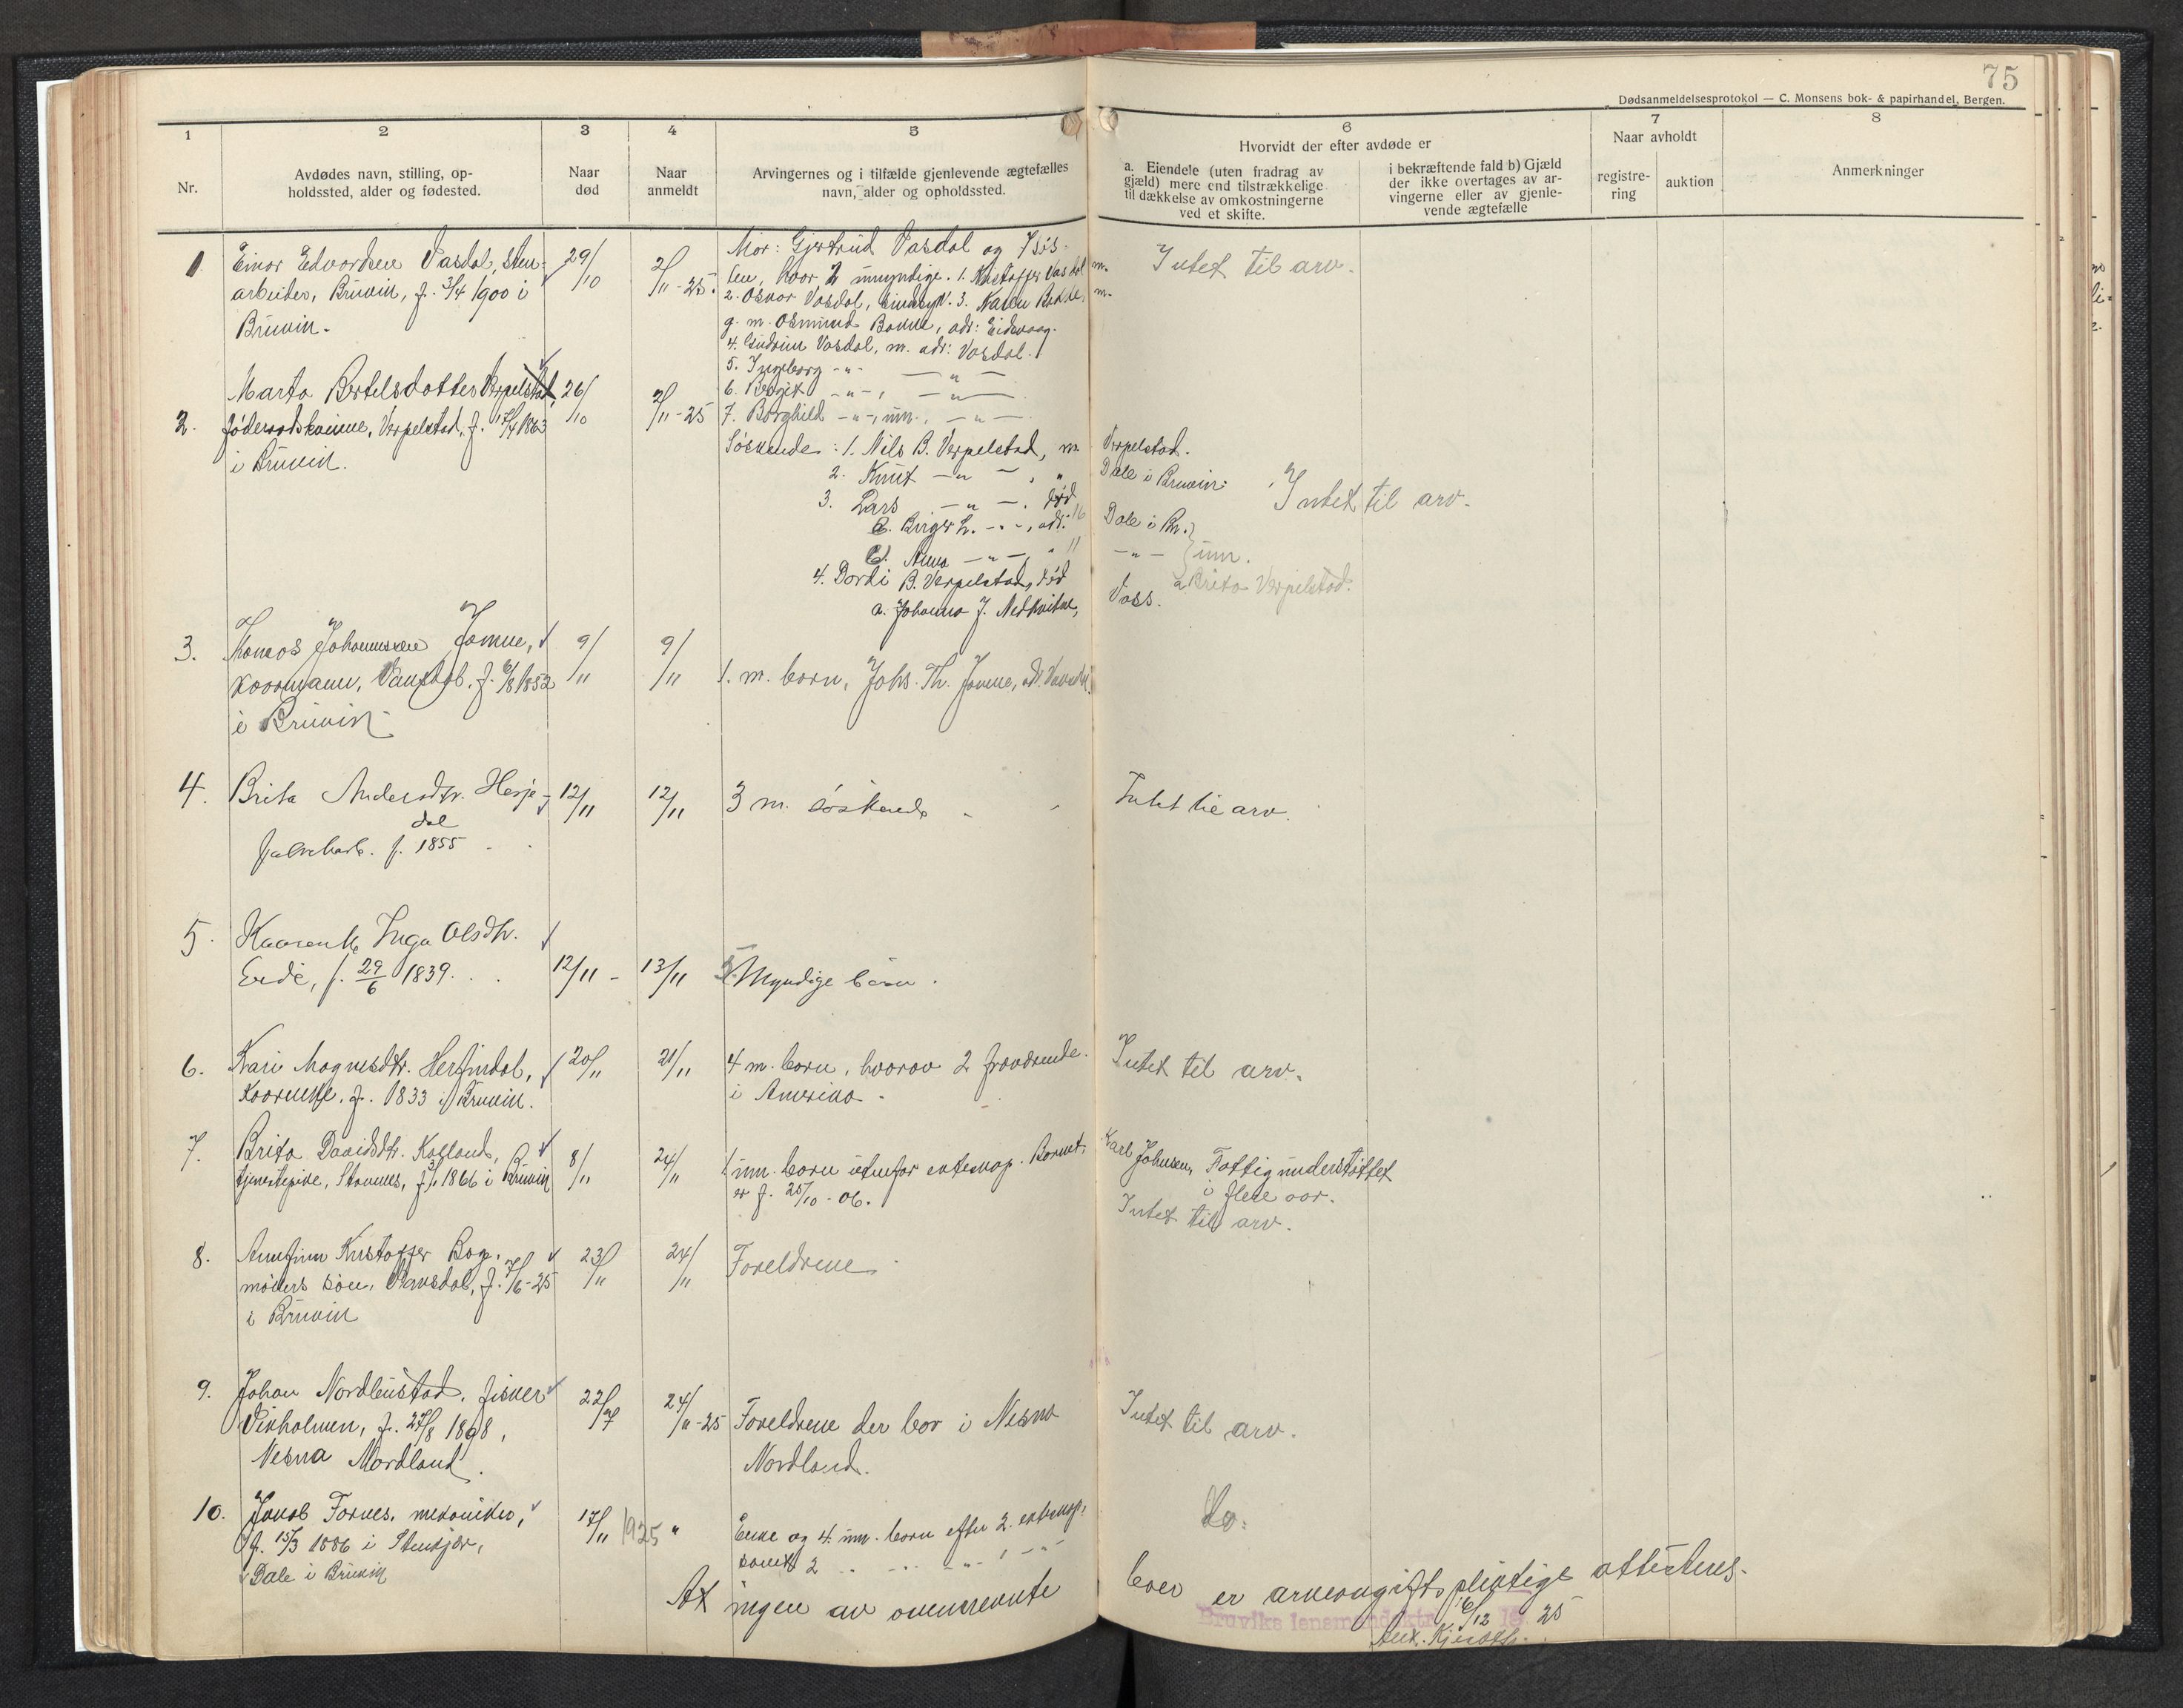 75
Dødsanmeldelsesprotokol — C. Monsens bok- & papirhandel, Bergen.
1 2 3 4 5 6 7 8
Nr.
Avdødes navn, stilling, op-
holdssted, alder og fødested.
Naar
død
Naar
anmeldt
Arvingernes og i tilfælde gjenlevende ægtefælles
navn, alder og opholdssted.
Hvorvidt der efter avdøde er
a. Eiendele (uten fradrag av
gjæld) mere end tilstrækkelige
til dækkelse av omkostningerne
ved et skifte.
i bekræftende fald b) Gjæld
der ikke overtages av ar-
vingerne eller av gjenle-
vende ægtefælle
Naar avholdt
registre-
ring
auktion
Anmerkninger
1 Einar Edvardsen Vasdal, sten-
arbeider, Bruvik, f. 3/4 1900 i
Bruvik.
29/10
2/11-25.
Mor: Gjertrud Vasdal og 7 søs-
ken, hvor 2 umyndige. 1. Kristoffer Vasdal m.
2. Oskar Vasdal, 3. Karen m.
g. m. Osmund adr: Eidsvaag.
4. Gudrun Vasdal, m. adr: Vasdal.
5. Ingeborg -"- — " —
6. Bergit -"-, — " —
7. Borghild -"-, um., — " —
Intet til arv.
2. Marta Bertelsdotter Verpelstad,
føderaadskvinne, Verpelstad, f. 17/4 1863
i Bruvik.
26/10
2/11-25
Søskende: 1. Nils B. Verpelstad, m Verpelstad.
2. Knut — " —, " Dale i Bruvik.
3. Lars — " —. død
Birger L. - " -, adr. 16 Dale i Br.
Anna — " —, " 11 — " — } um.
4. Dordi B. Verpelstad, død
a. Johanna J. Nedkvitne, Voss.
a Brita Verpelstad.
Intet til arv.
3. Tomas Johannessen Jamne,
kaarmann, f. 6/8 1852
i Bruvik
9/11
9/11
1. m. born, Johs. Th. Jamne,
4. Brita Andersdtr. Hesje-
dal
f. 1855
12/11
12/11
3 m. søskende
Intet til arv.
5. Kaarenk. Inga Olsdtr.
Eide, f. 29/6 1839.
12/11 -
13/11
Myndige børn.
6. Kari Magnesdtr. Herfindal,
kaarenke, f. 1833 i Bruvik.
20/11
21/11
4 m. born, hvorav 2 fraværende
i Amerika -
Intet til arv.
7. Brita Davidsdtr. Kalland,
tjenestepike, Stamnes, 1866 i Bruvik
8/11
24/11
1 um. born utenfor ektesкap. Barnet: Karl Johnsen,
er f. 25/10-06.
Fattigunderstøttet
i flere aar.
Intet til arv.
8. Arnfinn Kristoffer Bog.
møllers søn, f. 7/6-25
i Bruvik
23/11
24/11
Foreldrene
9. Johan Nordleistad, fisker
Vikholmen, f. 27/8 1898,
Nesna Nordland.
22/7
24/11-25
Foreldrene der bor i Nesna
Nordland.
Intet til arv.
10. Jakob Fornes, mekaniker,
f. 15/3 1886 i Stenkjær,
Dale i Bruvik
17/11 1925
"
Enke og 4. um. born efter 2. ektesкap.
samt 2 " " " 1 - " -
Do.
At ingen av ovennevnte boer er arveavgiftspliktige attesteres.
Bruviks lensmandsktr. 16/12 1925